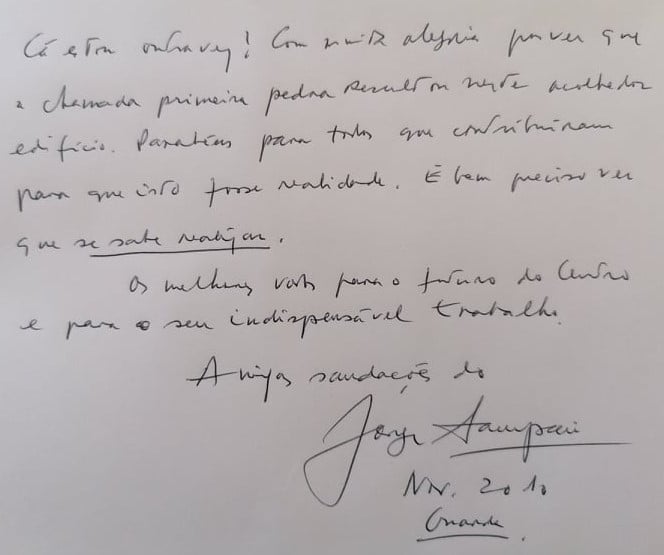 Cá estou outra vez! Com muita alegria por ver que
a chamada primeira pedra resultou neste acolhedor
edifício. Parabéns para todos que contribuiram
para que isto fosse realidade. É bem preciso ver
que se sabe realizar.
Os melhores votos para o futuro do Centro
e para o seu indispensável trabalho.
Amigas saudações do
Jorge Sampaio
Nov. 2010